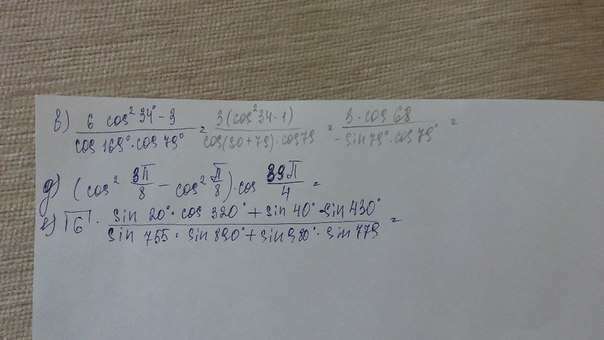 в) (6 cos² 34° - 3)/(cos 169° · cos 79°) = 3(cos² 34 - 1)/(cos(90 + 79) · cos 79) = 3 · cos 68/(- sin 79° · cos 79°) =
д) (cos² 3π/8 - cos² π/8) · cos 39π/4 =
е) √6 · (sin 20° · cos 320° + sin 40° · sin 430°)/(sin 755 · sin 890° + sin 980° · sin 779) =